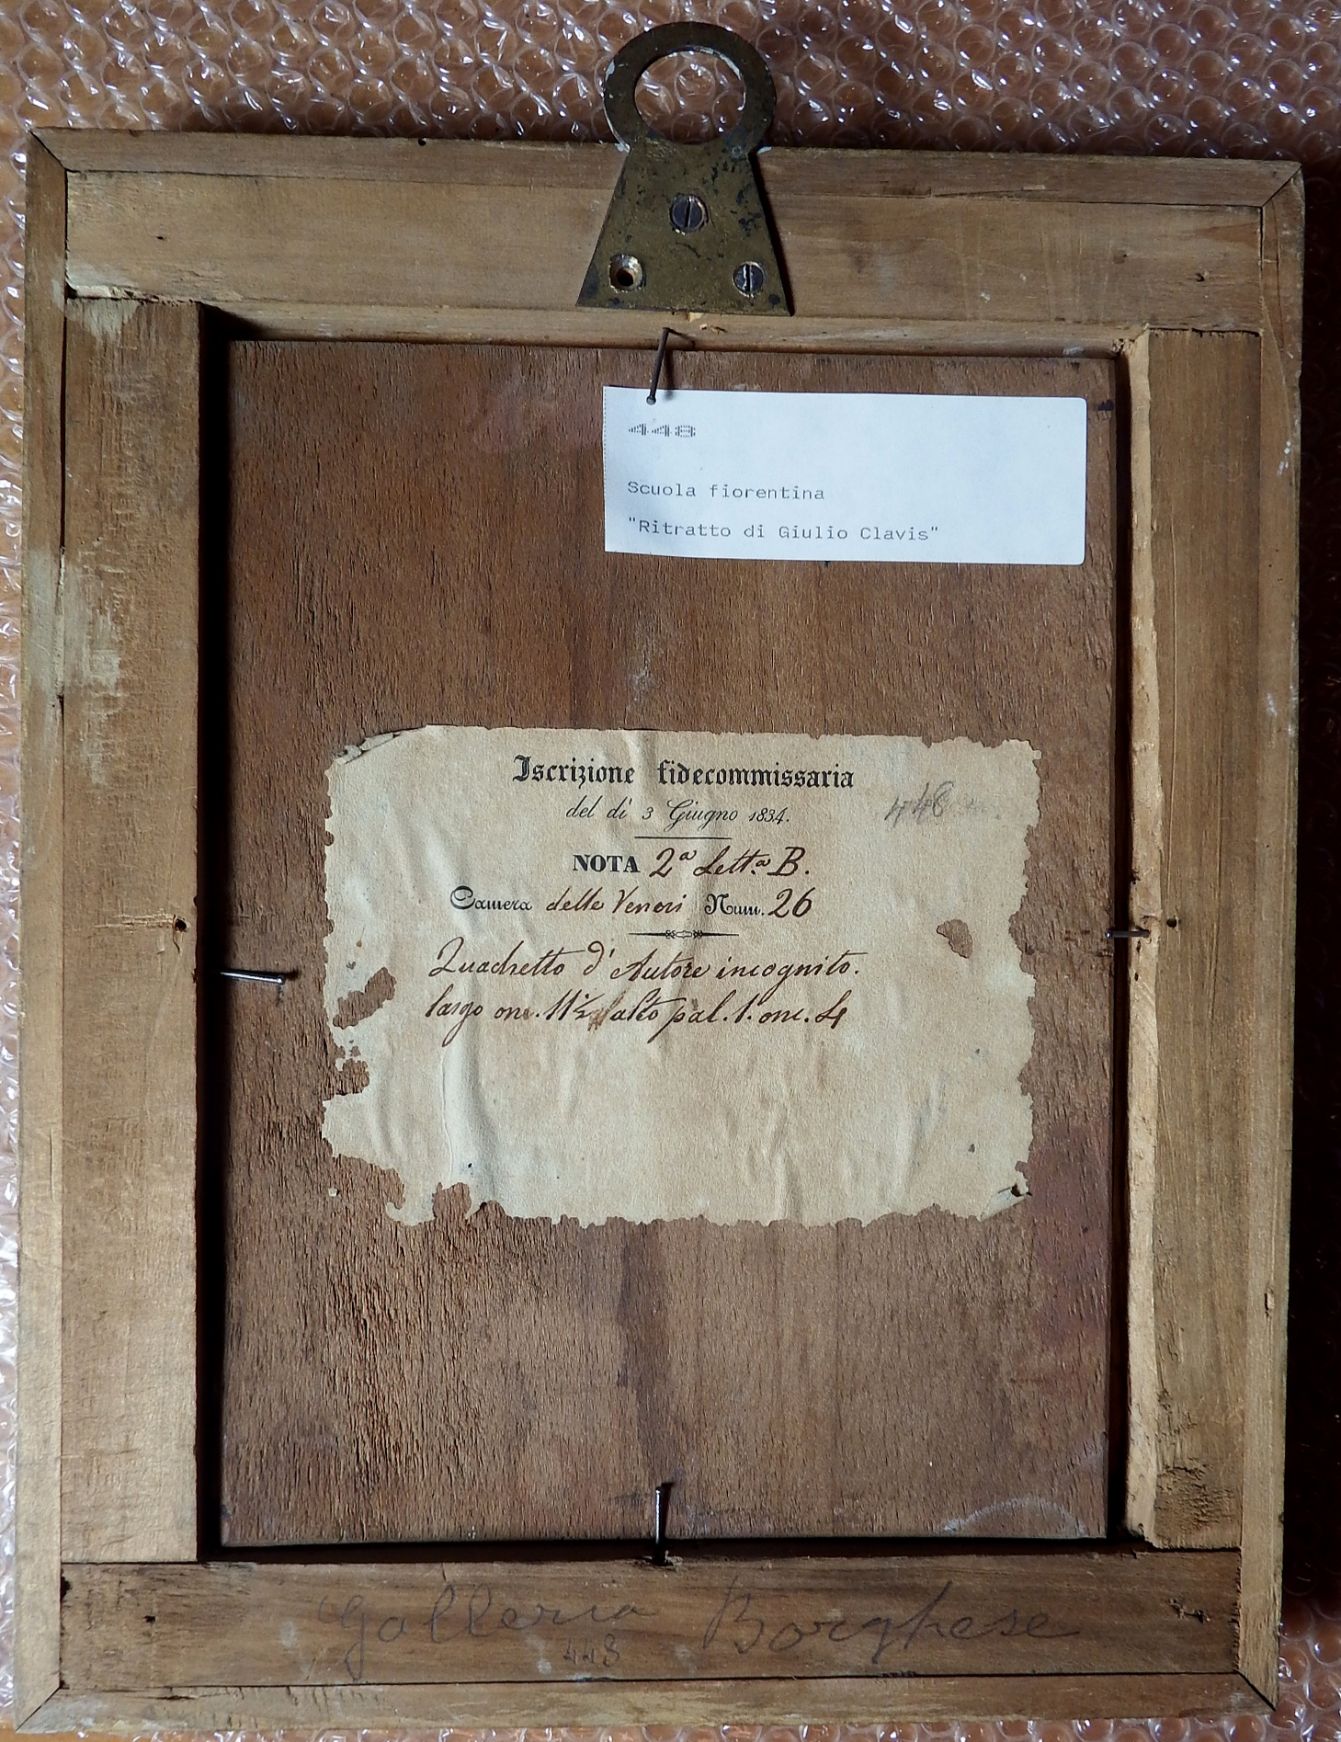 448
Scuola fiorentina
"Ritratto di Giulio Clavis"
Iscrizione fidecommissaria
del dì 3 Giugno 1834.
448
NOTA 2ª Lettª B.
Camera delle Veneri Num. 26
Quadretto d'Autore incognito.
largo onc. 11½ alto pal. 1. onc. 4
Galleria Borghese
448